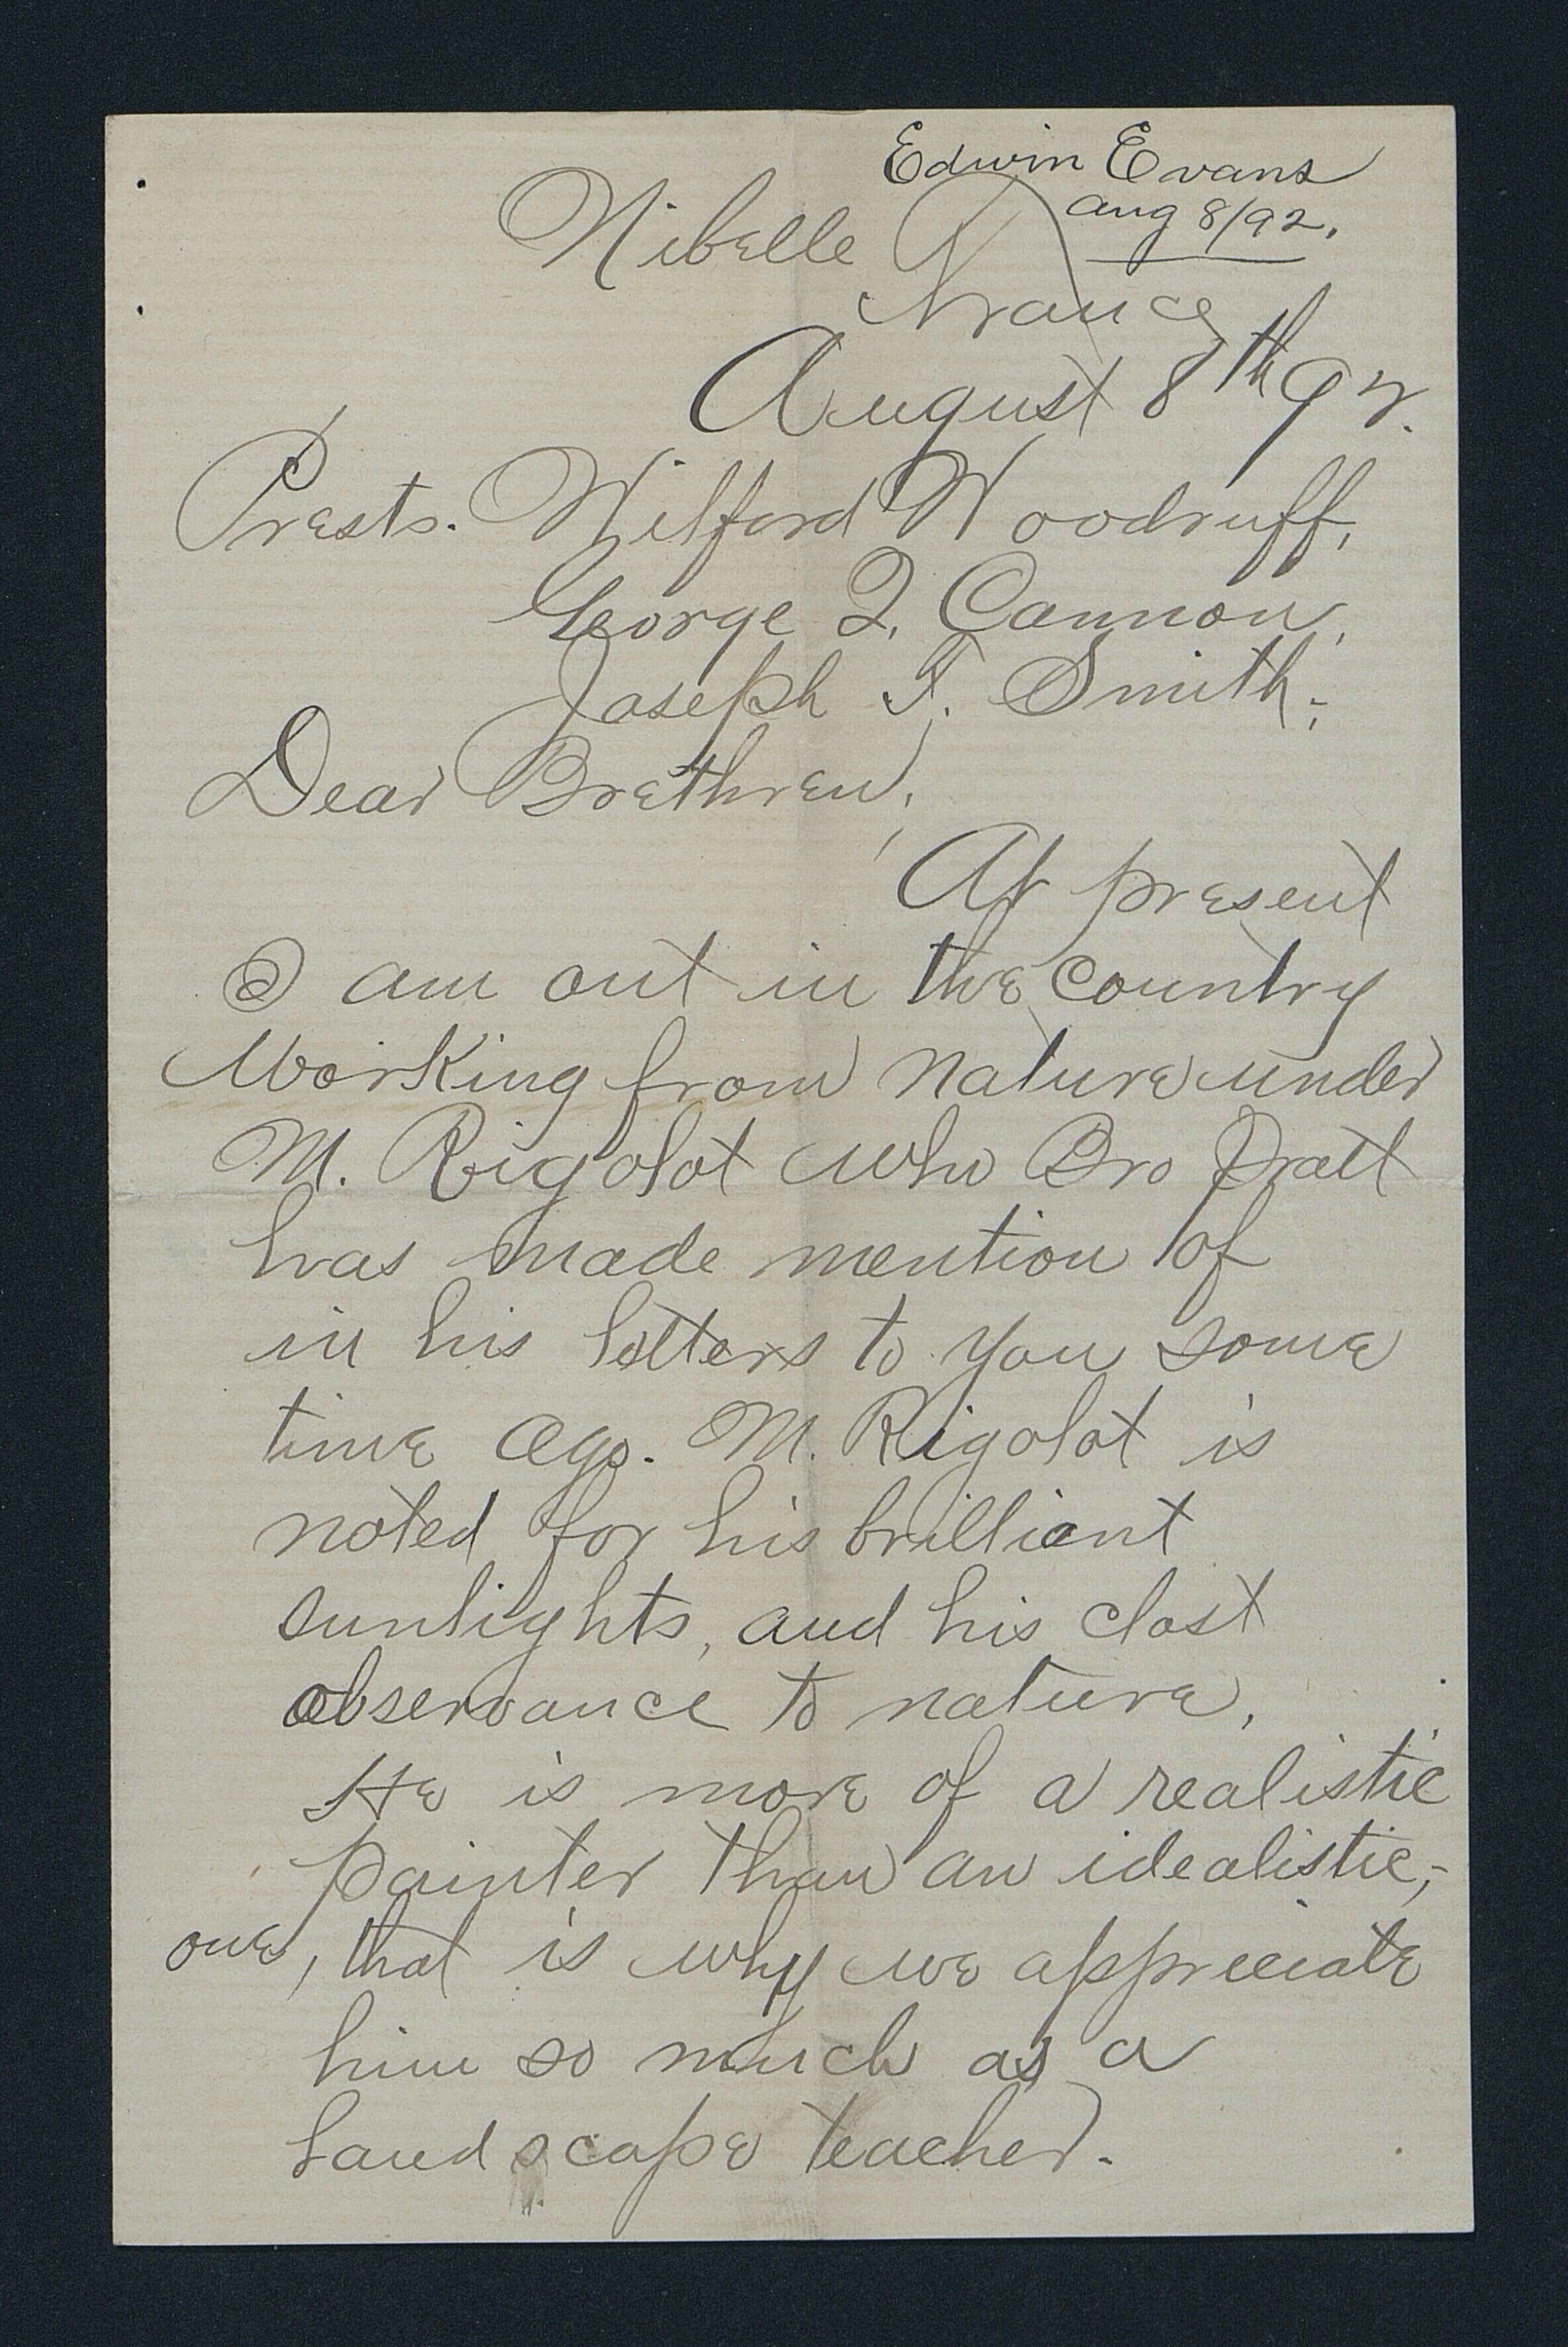 Edwin Evans
Aug 8/92.
Nibelle
France
August 8th 92.
Prests. Wilford Woodruff,
George Q. Cannon,
Joseph F. Smith;
Dear Brethren,
At present
I am out in the country
working from nature under
M. Rigolot who Bro Pratt
has made mention of
in his letters to you some
time ago. M. Rigolot is
noted for his brilliant
sunlights, and his clost
observance to nature,
He is more of a realistic
painter than an idealistic,-
one, that is why we appreciate
him so much as a
landscape teacher.